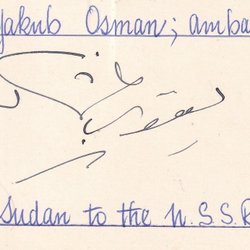 Yakub Osman; amba
Sudan to the U.S.S.R